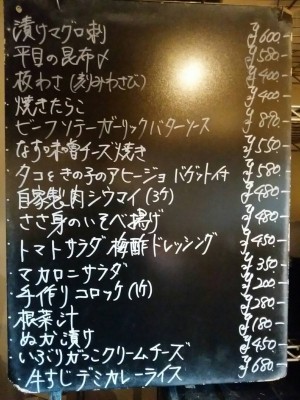 漬けマグロ刺 ¥600-
平目の昆布〆 ¥580-
板わさ(刻みわさび) ¥400-
焼きたらこ ¥400-
ビーフソテーガーリックバターソース ¥890-
なす味噌チーズ焼き ¥550-
タコときの子のアヒージョ バゲット付 ¥580-
自家製肉シウマイ(3ケ) ¥480-
ささ身のいそべ揚げ ¥480-
トマトサラダ 梅酢ドレッシング ¥450-
マカロニサラダ ¥350-
手作りコロッケ(1ケ) ¥200-
根菜汁 ¥280-
ぬか漬け ¥180-
いぶりがっこクリームチーズ ¥450-
牛すじデミカレーライス ¥680-